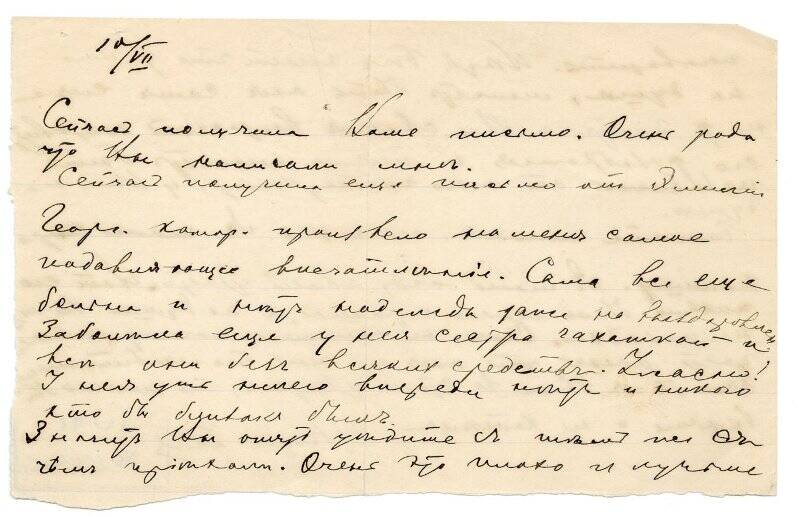 10/VII
Сейчас получила Ваше письмо. Очень рада
что Вы написали мнѣ.
Сейчас получила еще письмо от
Георг. котор. произвело на меня самое
подавляющее впечатлѣніе. Сама все еще
больна и нѣтъ надежды даже на выздоровлен
Заболѣла еще у нея сестра чахоткой и
всѣ они безъ всякихъ средствъ. Ужасно!
У нея уже ничего впереди нѣтъ и никого
кто бы близокъ былъ.
Значитъ Вы опять уѣдите съ
чѣмъ пріѣхали. Очень это плохо и лучше